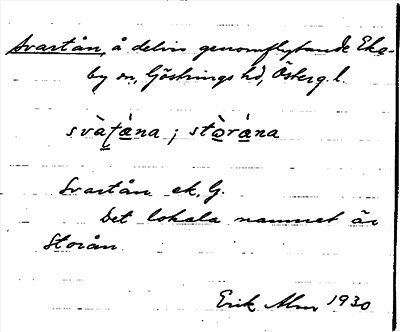 Svartån, å delvis genomflytande Eke-
by sn, Göstrings hd, Österg. l.
svàťa̱na ; stòrána
Svartån ek. G.
Det lokala namnet är
Storån.
Erik Alm 1930